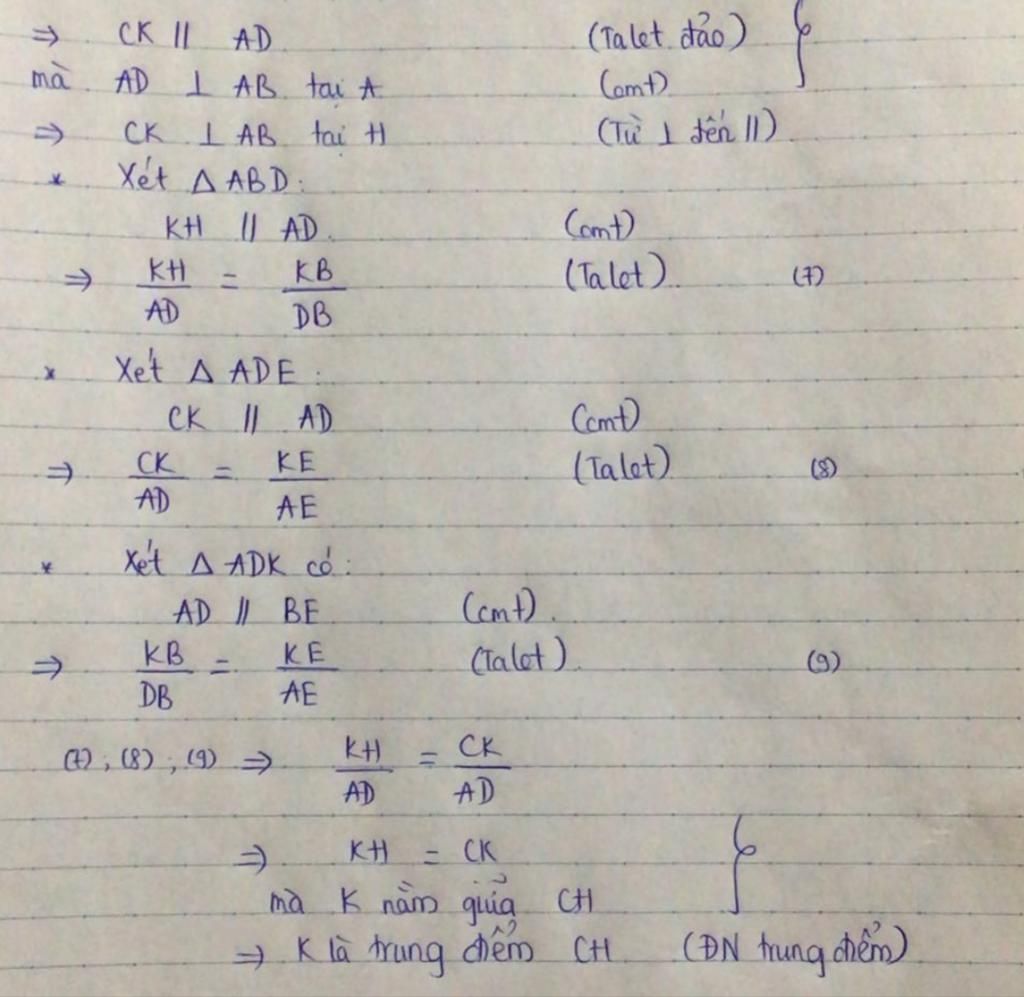 ⇒ CK // AD (Talet đảo) }
mà AD ⊥ AB tại A (cmt)
⇒ CK ⊥ AB tại H (Từ ⊥ đến //)
* Xét Δ ABD:
KH // AD. (cmt)
⇒ KH/AD = KB/DB (Talet). (7)
* Xét Δ ADE:
CK // AD (cmt)
⇒ CK/AD = KE/AE (Talet) (8)
* Xét Δ ADK có:
AD // BE (cmt).
⇒ KB/DB = KE/AE (Talet). (9)
(7), (8), (9) ⇒ KH/AD = CK/AD
⇒ KH = CK }
mà K nằm giủa CH
⇒ K là trung điểm CH (ĐN trung điểm)